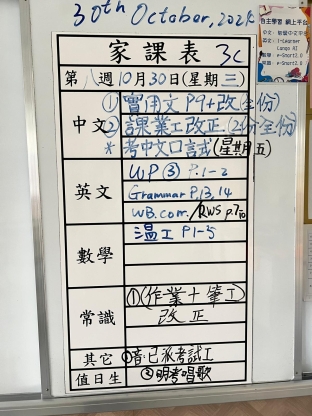 30th October, 2024
自主學習 網上平台
家課表 3C
第八週10月30日(星期三)
中文
① 實用文 P9+改(全份)
② 課業工改正 (2份全份)
* 考中文口試(星期五)
英文
WP ③ P.1-2
Grammar P.13,14
WB.com./RWS P.7,10
數學
温工 P1-5
常識
①(作業+筆工)
改正
其它
①音:已派考試工
值日生
②明考唱歌